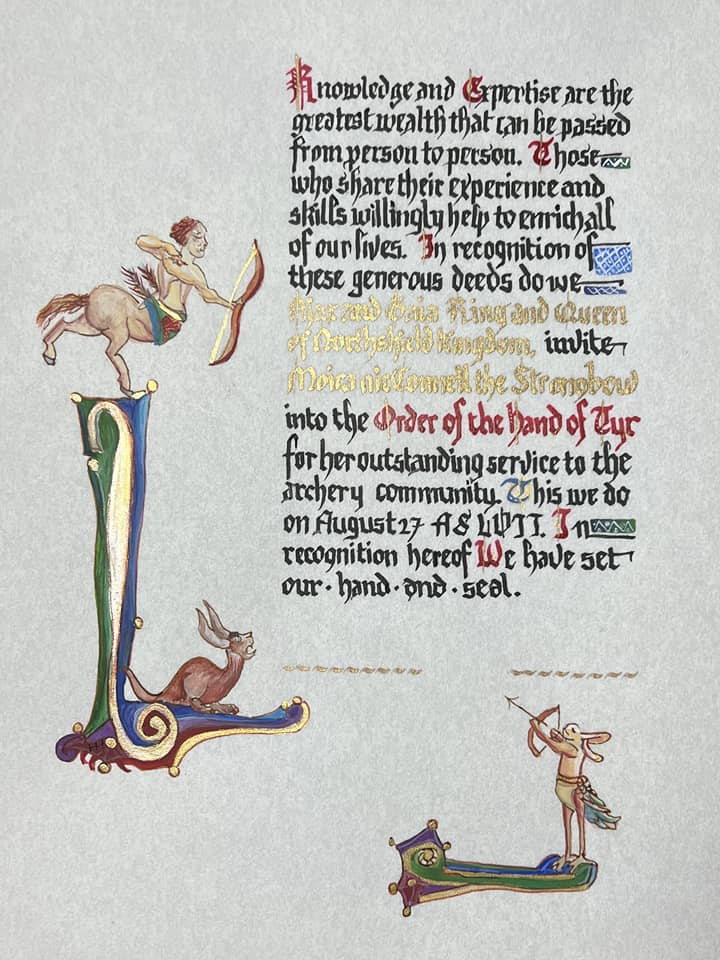 Knowledge and Expertise are the
greatest wealth that can be passed
from person to person. Those
who share their experience and
skills willingly help to enrich all
of our lives. In recognition of
these generous deeds do we
and Gaia King and Queen
of Northshield Kingdom, invite
Moira nicConnell the Strongbow
into the Order of the Hand of Tyr
for her outstanding service to the
archery community. This we do
on August 27 AS LVII. In
recognition hereof We have set
our · hand · and · seal.